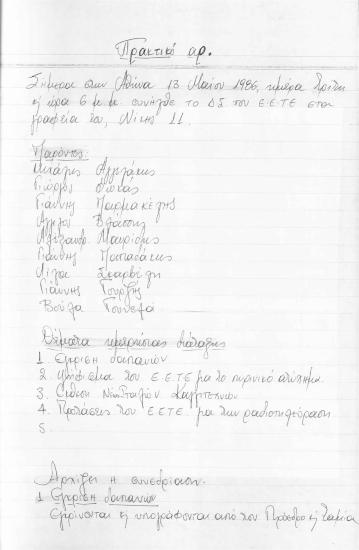 Πρακτικό αρ.
Σήμερα στην Αθήνα 13 Μαΐου 1986, ημέρα Τρίτη
και ώρα 6 μ.μ. συνήλθε το ΔΣ του Ε.Ε.Τ.Ε στα
γραφεία του, Νίκης 11.
Παρόντες:
Μιχάλης Αγγελάκης
Γιώργος
Γιάννης
Άγγελος Βλάσσης
Αλέξανδρ. Μαυρίδης
Γιάννης Παπαδάκης
Λίζα
Γιάννης Γουρζής
Βούλα Γουνελά
Θέματα ημερήσιας διάταξης
1. Έγκριση δαπανών
2. Ψήφισμα του Ε.Ε.Τ.Ε για το πυρηνικό ατύχημα
3. Έκθεση Νέων Καλλιτεχνών
4. Προτάσεις του Ε.Ε.Τ.Ε. για την ραδιοτηλεόραση
5.
Αρχίζει η συνεδρίαση.
1 Έγκριση δαπανών
Εγκρίνονται και υπογράφονται από τον Πρόεδρο και Ταμία